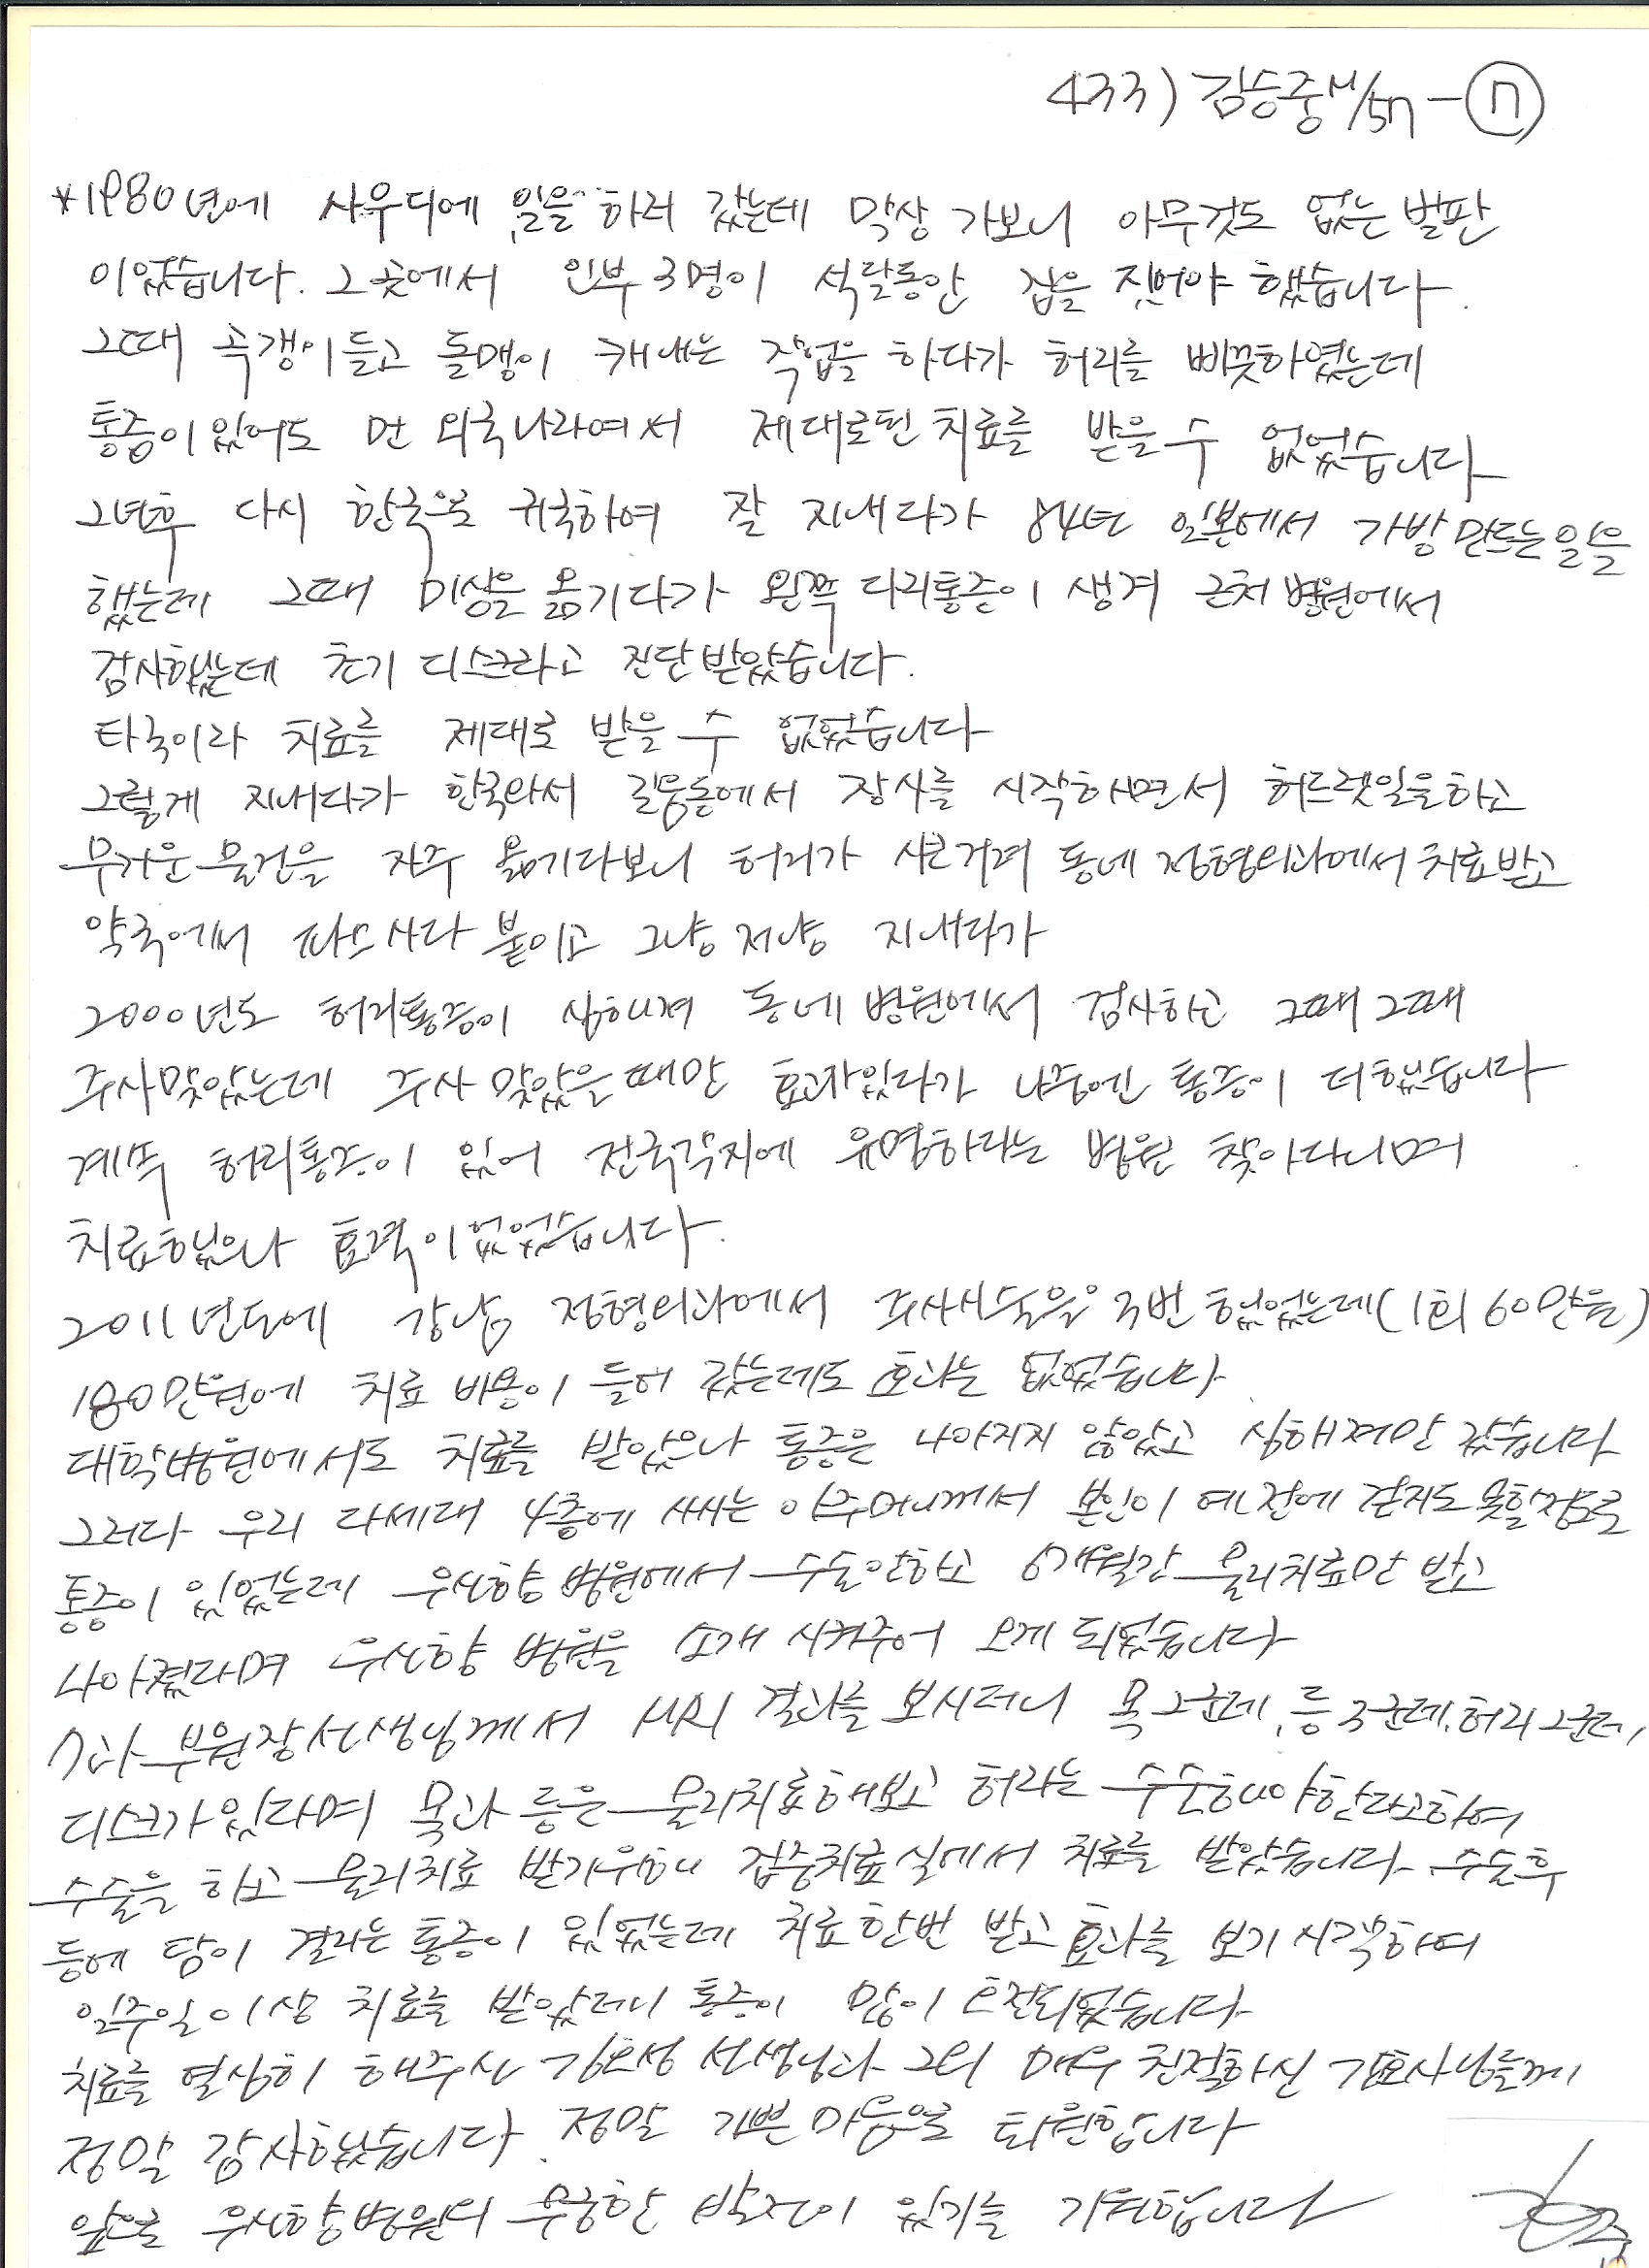 433) 김승중 M/57 - ⑦
*1980년에 사우디에 일을 하러 갔는데 막상 가보니 아무것도 없는 벌판
이었습니다. 그 곳에서 인부 3명이 석달동안 집을 지어야 했습니다.
그때 곡갱이 들고 돌맹이 캐내는 작업을 하다가 허리를 삐끗하였는데
통증이 있어도 먼 외국나라여서 제대로된 치료를 받을 수 없었습니다
2년후 다시 한국으로 귀국하여 잘 지내다가 84년 일본에서 가방 만드는 일을
했는데 그때 미싱을 옮기다가 왼쪽 다리통증이 생겨 근처 병원에서
검사했는데 초기 디스크라고 진단받았습니다.
타국이라 치료를 제대로 받을 수 없었습니다
그렇게 지내다가 한국와서 길음동에서 장사를 시작하면서 허드렛일을하고
무거운 물건을 자주 옮기다보니 허리가 시큰거려 동네 정형외과에서 치료받고
약국에서 파스사다 붙이고 그냥 저냥 지내다가
2000년도 허리통증이 심해져 동네 병원에서 검사하고 그때 그때
주사맞았는데 주사 맞았을때만 효과있다가 나중엔 통증이 더했습니다
계속 허리통증이 있어 전국각지에 유명하다는 병원 찾아다니며
치료했으나 효력이 없었습니다.
2011년도에 강남 정형외과에서 주사시술을 3번 했었는데 (1회 60만원)
180만원에 치료 비용이 들어 갔는데도 효과는 없었습니다
대학병원에서도 치료를 받았으나 통증은 나아지지 않았고 심해져만 갔습니다
그러다 우리 다세대 4층에 사시는 아주머니께서 본인이 예전에 걷지도 못할정도로
통증이 있었는데 우신향 병원에서 수술안하고 6개월간 물리치료만 받고
나아졌다며 우신향 병원을 소개 시켜주어 오게 되었습니다
7과 부원장선생님께서 MRI 결과를 보시더니 목 2군데, 등 3군데, 허리 2군데,
디스크가있다며 목과 등은 물리치료해보고 허리는 수술해야한다고하여
수술을 하고 물리치료 받기위해 집중치료실에서 치료를 받았습니다. 수술후
등에 담이 결리는 통증이 있었는데 치료한번 받고 효과를 보기 시작하여
일주일 이상 치료를 받았더니 통증이 많이 호전되었습니다
치료를 열심히 해주신 선생님과 그외 매우 친절하신 간호사님들께
정말 감사했습니다. 정말 기쁜마음으로 퇴원합니다
앞으로 우신향병원의 무궁한 발전이 있기를 기원합니다